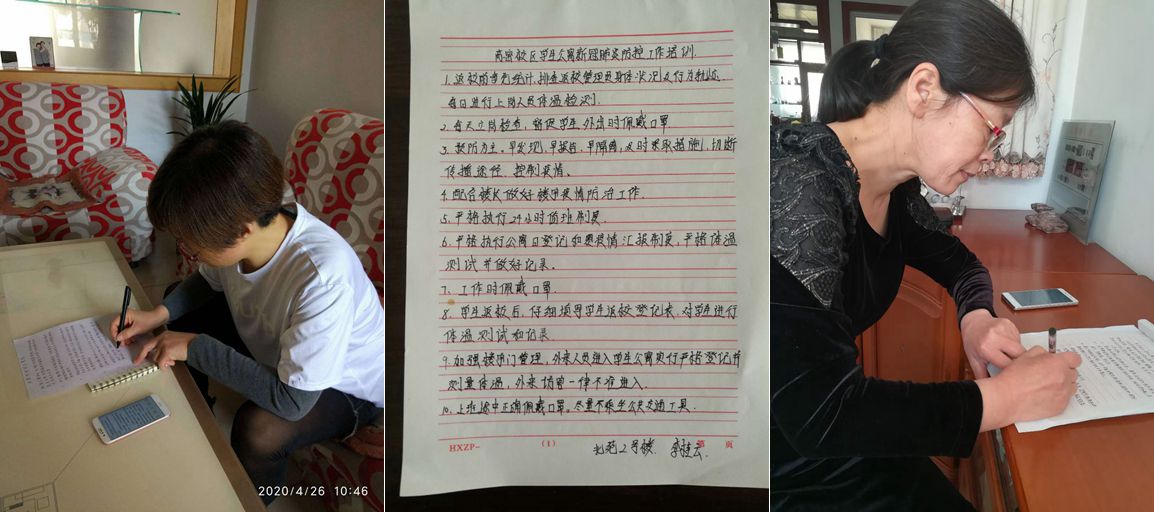 2020/4/26 10:46
高密校区学生公寓新冠肺炎防控工作培训.
1. 返校前事先统计、排查返校管理员身体状况及行为轨迹.
每日进行上岗人员体温检测.
2. 每天立岗检查, 督促学生外出时佩戴口罩
3. 预防为主, 早发现, 早报告, 早隔离, 及时采取措施, 切断
传播途径. 控制疫情、
4. 配合楼长做好楼宇疫情防治工作.
5. 严格执行24小时值班制度.
6. 严格执行公寓日登记和零报情汇报制度, 严格体温
测试并做好记录、
7、工作时佩戴口罩
8. 学生返校后, 仔细填写学生返校登记表. 对学生进行
体温测试和记录
9. 加强楼宇门管理, 外来人员进入学生公寓实行严格登记并
测量体温, 外来 一律不准进入.
10. 上班途中正确佩戴口罩。尽量不乘坐公共交通工具.
HXZP- (1) 第 页
北苑2号楼. 李桂云.